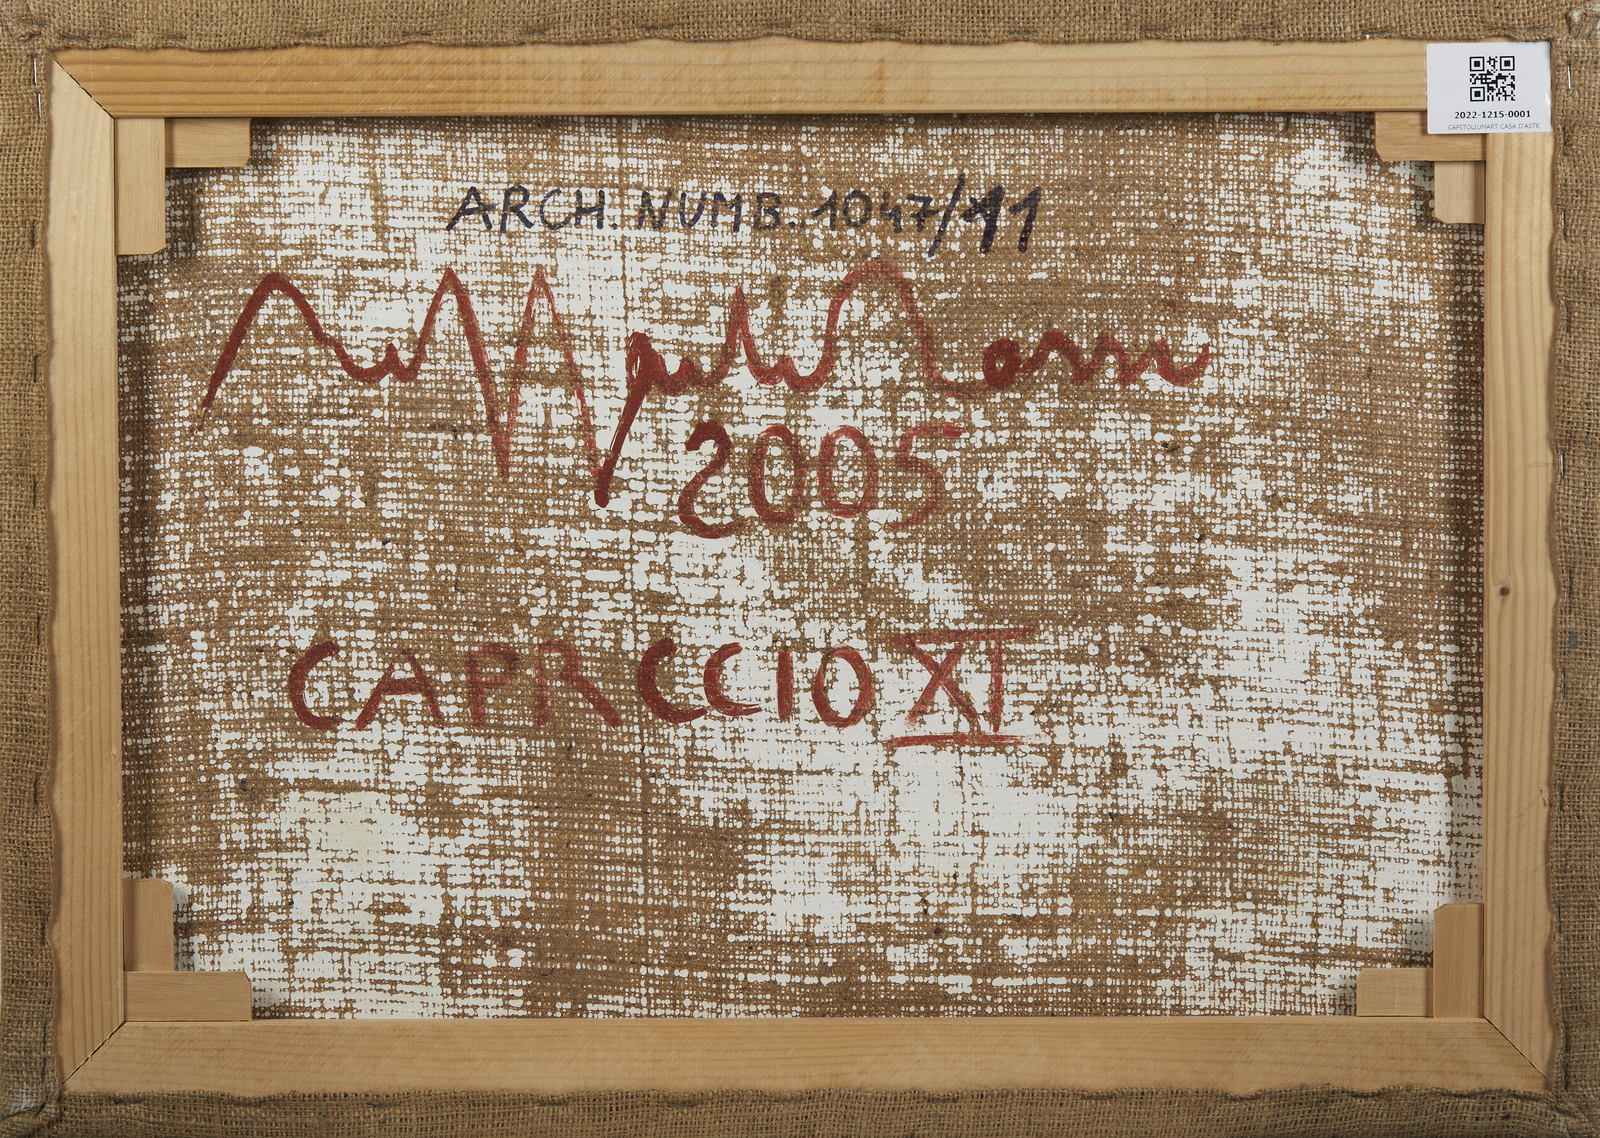 2022-1215-0001
CAPITOLIUMART CASA D'ASTE
ARCH. NUMB. 1047/11
2005
CAPRCCIO XI